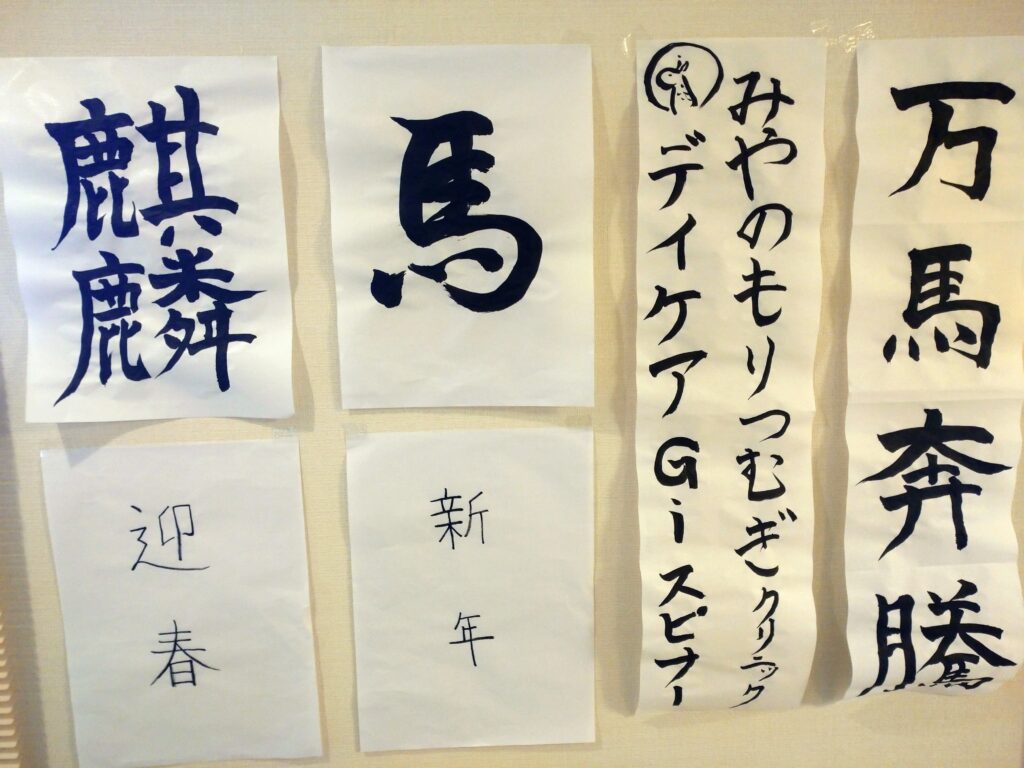 麒麟
馬
みやのもりつむぎクリニック
デイケアGiスピナー
万馬奔騰
迎春
新年